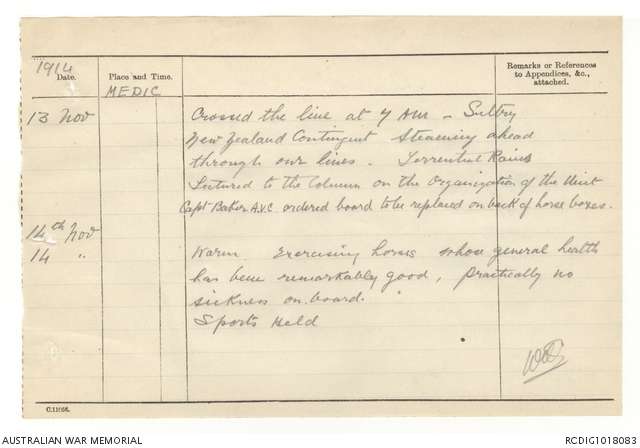 1914
Date.
Place and Time.
Remarks or References
to Appendices, &c.,
attached.
MEDIC
13 Nov
Crossed the line at 7 AM - Sultry
New Zealand Contingent Steaming ahead
through our lines. Torrential Rains
Lectured to the Column on the Organization of the Unit
Capt Baker A.V.C ordered board to be replaced on back of horse boxes.
14th Nov
14 "
Warm Exercising horses whose general health
has been remarkably good, practically no
sickness on board.
Sports Held
AUSTRALIAN WAR MEMORIAL
RCDIG1018083